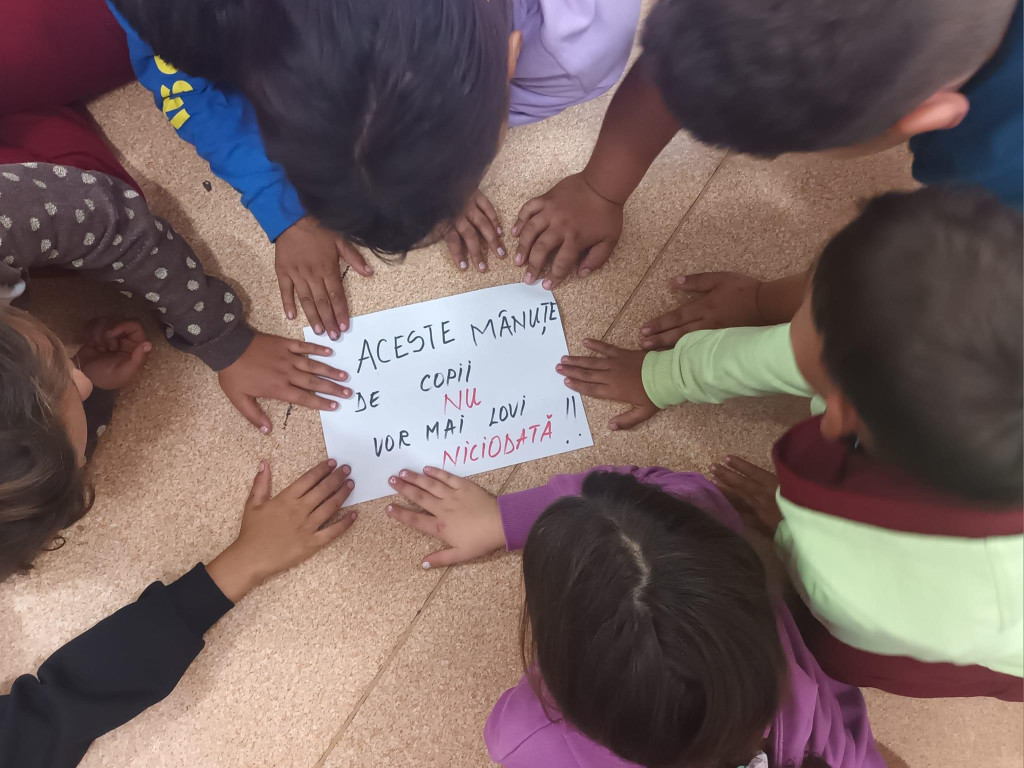 ACESTE MÂNUȚE
DE COPII
NU
VOR MAI LOVI
NICIODATĂ !!